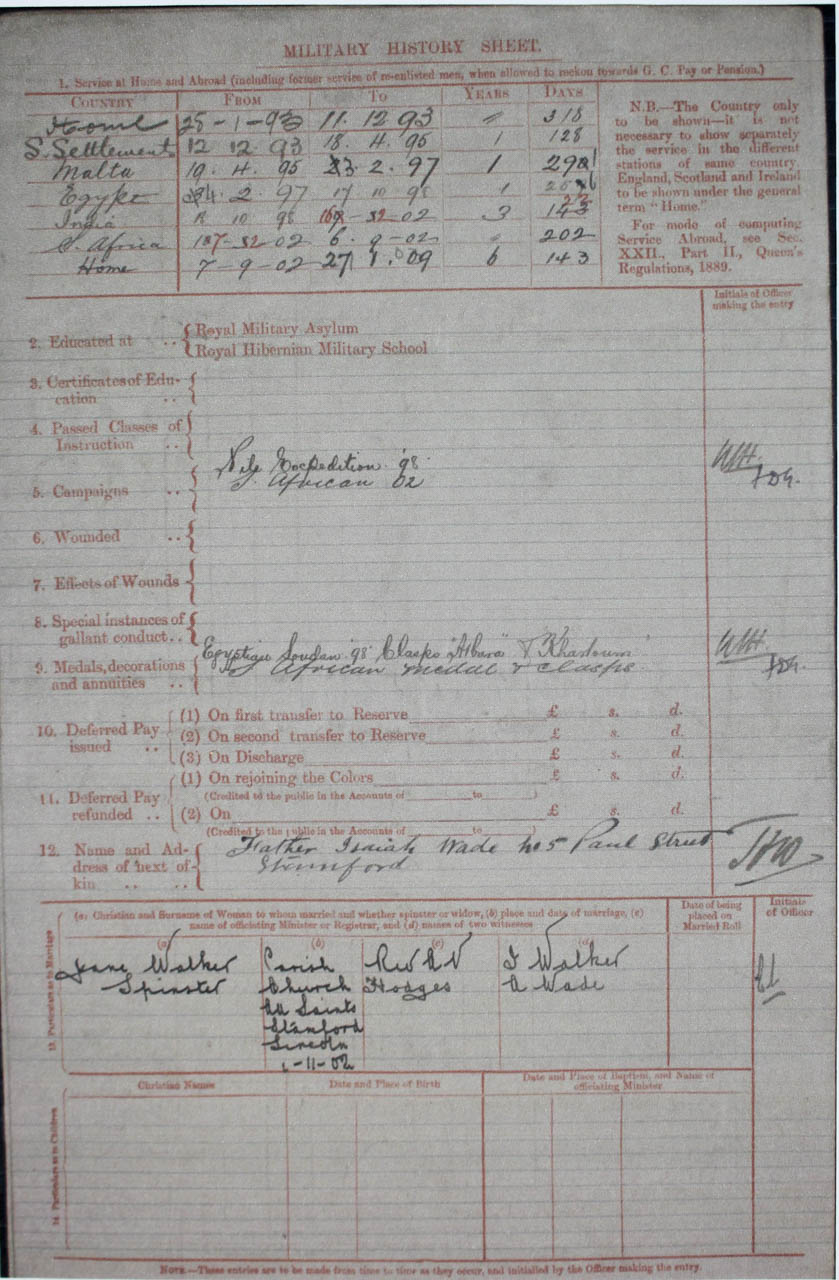 MILITARY HISTORY SHEET.
1. Service at Home and Abroad (including former service of re-enlisted men, when allowed to reckon towards G. C. Pay or Pension.)
COUNTRY FROM TO YEARS DAYS
Home 25-1-93 11. 12 93 " 318
S. Settlements 12 12. 93 18. 4. 95 1 128
Malta 19. 4. 95 2. 97 1
Egypt 2. 97 17 10 98 1
India 10 98 02 3 143
S. Africa 02 6. 9-02 " 202
Home 7-9-02 27 1. 09 6 143
N.B.—The Country only
to be shown—it is not
necessary to show separately
the service in the different
stations of same country.
England, Scotland and Ireland
to be shown under the general
term "Home."
For mode of computing
Service Abroad, see Sec.
XXII., Part II., Queen's
Regulations, 1889.
Initials of Officer
making the entry
2. Educated at .. Royal Military Asylum
Royal Hibernian Military School
3. Certificates of Edu-
cation ..
4. Passed Classes of
Instruction ..
5. Campaigns ..
Nile Expedition '98
S. African 02
6. Wounded ..
7. Effects of Wounds
8. Special instances of
gallant conduct..
9. Medals, decorations
and annuities ..
Egyptian Soudan '98 Clasps "Atbara" & "Khartoum"
S African medal & clasps
10. Deferred Pay
issued ..
(1) On first transfer to Reserve £ s. d.
(2) On second transfer to Reserve £ s. d.
(3) On Discharge £ s. d.
11. Deferred Pay
refunded ..
(1) On rejoining the Colors £ s. d.
(Credited to the public in the Accounts of to )
(2) On £ s. d.
(Credited to the public in the Accounts of to )
12. Name and Ad-
dress of next of-
kin .. ..
Father Isaiah Wade No 5 Paul Street
Stamford
13. Particulars as to Marriage
(a) Christian and Surname of Woman to whom married and whether spinster or widow, (b) place and date of marriage, (c)
name of officiating Minister or Registrar, and (d) names of two witnesses
Date of being
placed on
Married Roll
Initials
of Officer
(a) (b) (c) (d)
Jane Walker Parish Rev J Walker
Spinster Church Hodges A Wade
All Saints
Stamford
Lincoln
1-11-02
14. Particulars as to Children
Christian Names Date and Place of Birth Date and Place of Baptism, and Name of
officiating Minister
NOTE.—These entries are to be made from time to time as they occur, and initialled by the Officer making the entry.